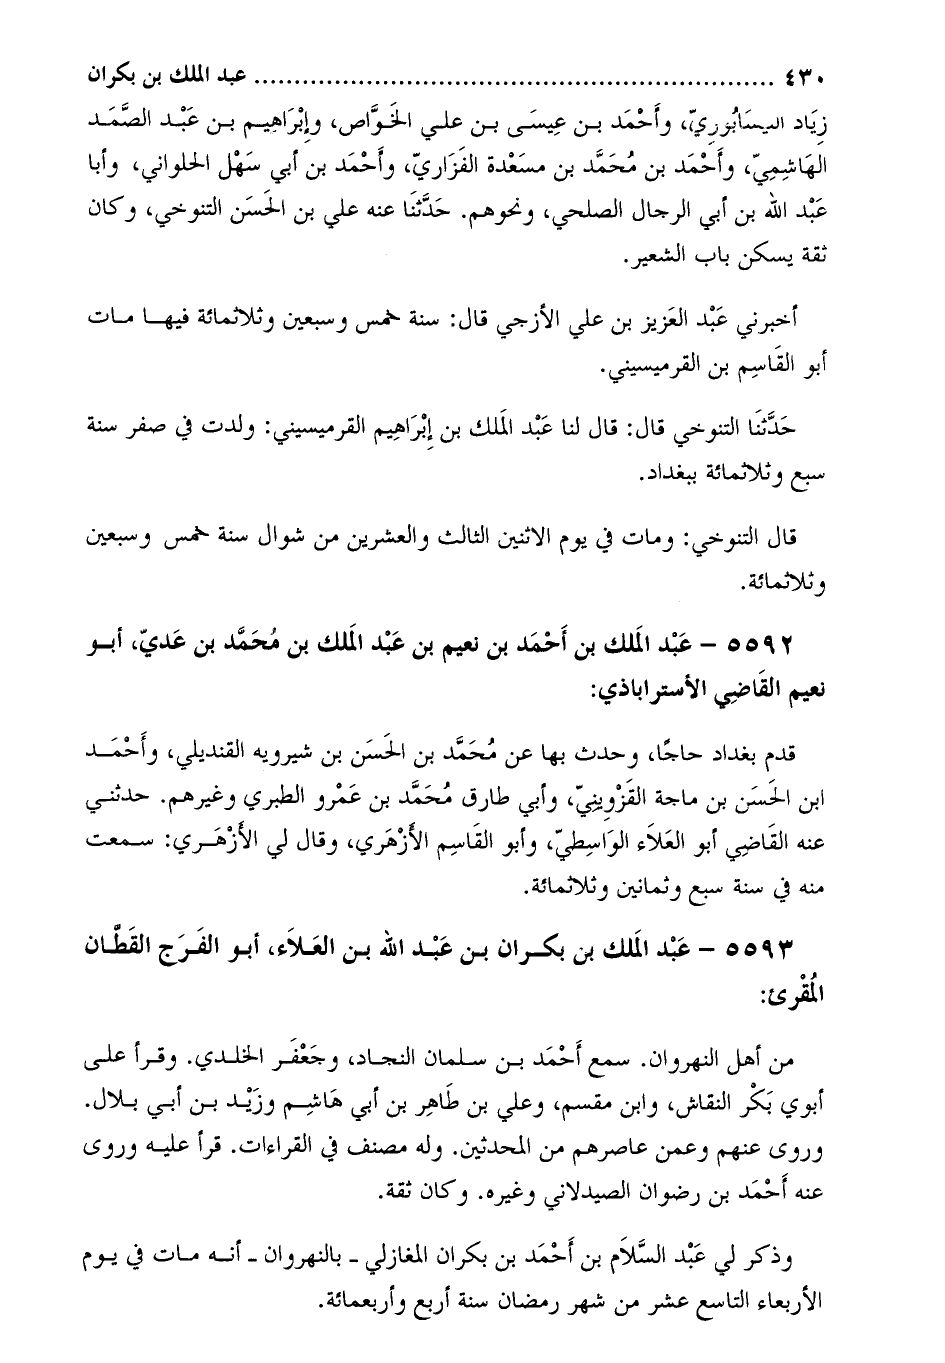 ٤٣٠ ................................................................ عبد الملك بن بكران
زِيَاد النيسَابُوِريّ، وأَحْمَد بـن عِيسَـى بـن علـي الخَـوَّاص، وإِبْرَاهيـم بـن عَبْـد الصَّمَـد
الهَاشِمِيّ، وأَحْمَد بن مُحَمَّد بن مسَعْدة الفَزَاريّ، وأَحْمَد بن أبي سَهْل الحلواني، وأبا
عَبْد الله بن أبي الرجال الصلحي، ونحوهم. حَدَّثَنَا عنه علي بن الحَسَن التنوخي، وكان
ثقة يسكن باب الشعير.
أخبرني عَبْد العَزيز بن علي الأزجي قال: سنة خمس وسبعين وثلاثمائة فيهـا مـات
أبو القَاسِم بن القرميسيني.
حَدَّثَنَا التنوخي قال: قال لنا عَبْد المَلك بن إِبْرَاهِيم القرميسيني: ولدت في صفر سنة
سبع وثلاثمائة ببغداد.
قال التنوخي: ومات في يوم الاثنين الثالث والعشرين من شوال سنة خمس وسبعين
وثلاثمائة.
٥٥٩٢ – عَبْد المَلك بن أَحْمَد بن نعيم بن عَبْد المَلك بن مُحَمَّد بن عَديّ، أبـو
نعيم القَاضِي الأستراباذي:
قدم بغداد حاجًا، وحدث بها عن مُحَمَّد بن الحَسَن بن شيرويه القنديلي، وأَحْمَـد
ابن الحَسَن بن ماجة القَزْوِينيّ، وأبي طارق مُحَمَّد بن عَمْرو الطبري وغيرهم. حدثنـي
عنه القَاضِي أبو العَلاَء الوَاسِطيّ، وأبو القَاسِم الأَزْهَري، وقال لي الأَزْهَـري: سـمعت
منه في سنة سبع وثمانين وثلاثمائة.
٥٥٩٣ – عَبْد المَلك بن بكـران بـن عَبْـد الله بـن العَـلاَء، أبـو الفَـرَج القَطَّان
المُقْرئ:
من أهل النهروان. سمع أَحْمَد بـن سـلمان النجـاد، وجَعْفَـر الخلـدي. وقـرأ علـى
أبوي بَكْر النقاش، وابن مقسم، وعلي بن طَاهِر بن أبي هَاشِـم وزَيْـد بـن أبـي بـلال.
وروى عنهم وعمن عاصرهم من المحدثين. وله مصنف في القراءات. قرأ عليـه وروى
عنه أَحْمَد بن رضوان الصيدلاني وغيره. وكان ثقة.
وذكر لي عَبْد السَّلاَم بن أَحْمَد بن بكران المغازلي ـ بالنهروان ـ أنـه مـات في يـوم
الأربعاء التاسع عشر من شهر رمضان سنة أربع وأربعمائة.